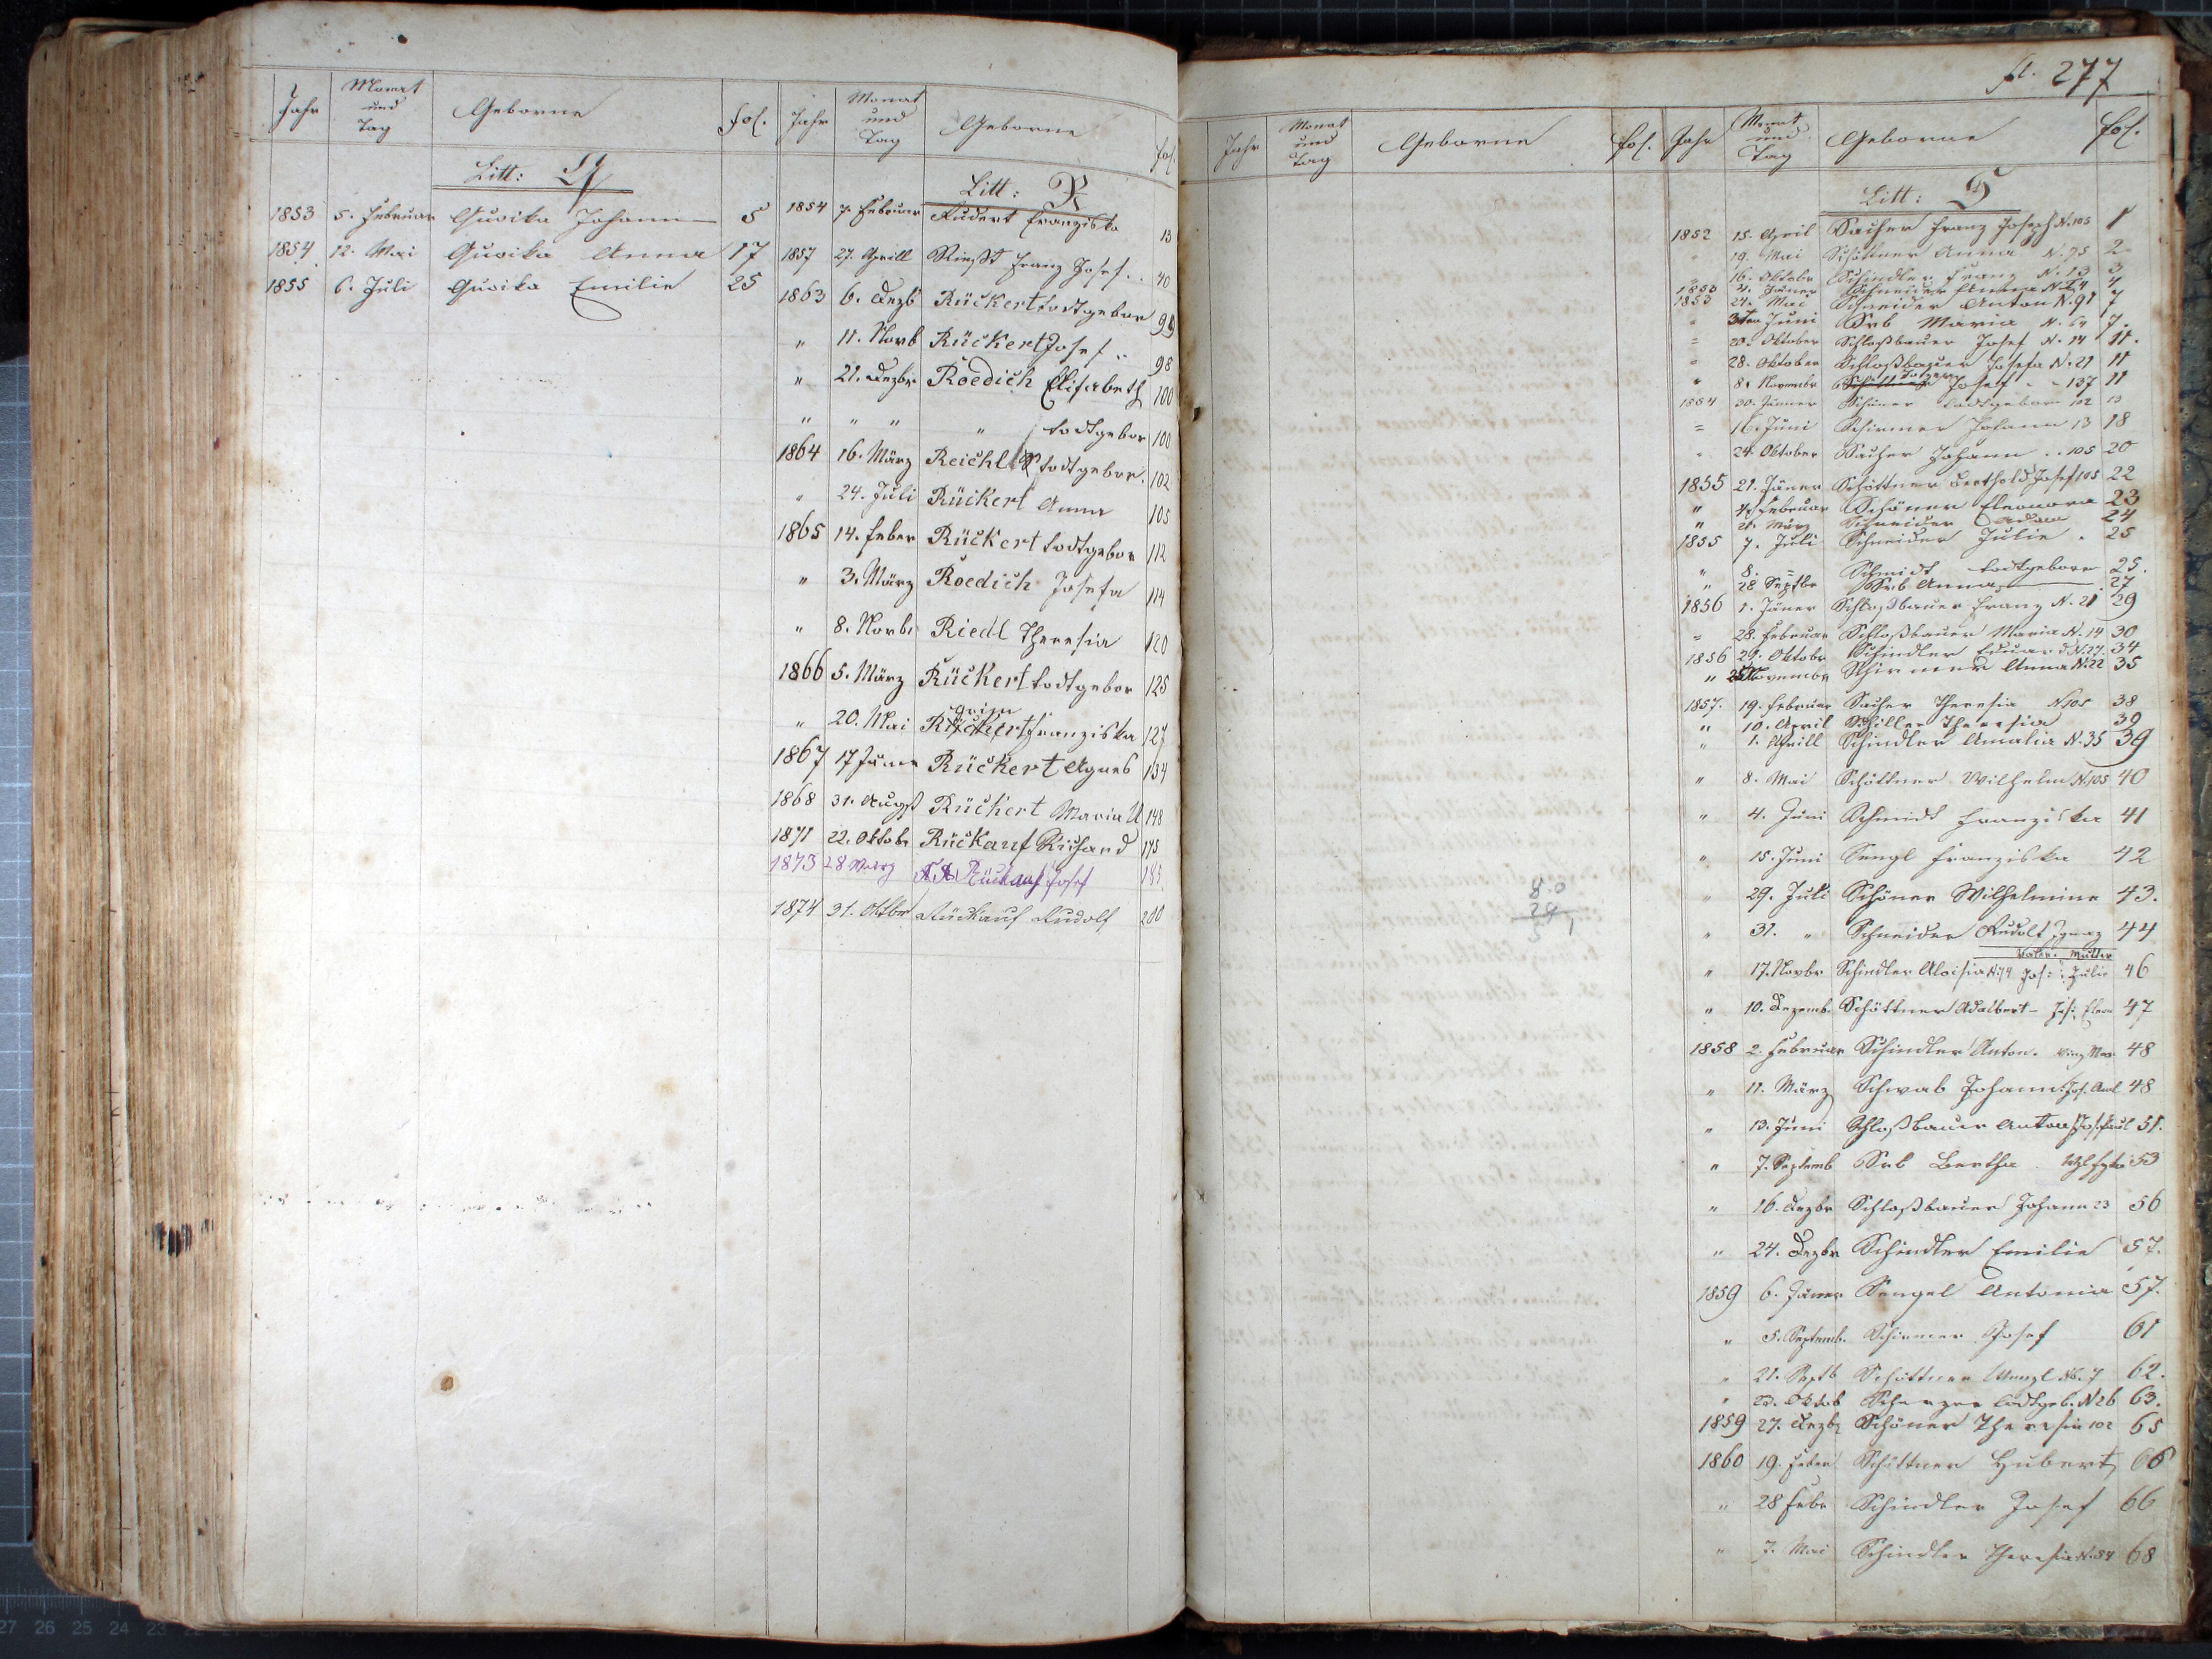 Jahr Monat und Tag Geborne fol.
Litt: Q
1853 5. Februar Quoika Johann 5
1854 12. Mai Quoika Anna 17
1855 6. Juli Quoika Emilie 25
Jahr Monat und Tag Geborne fol.
Litt: R
1854 7. Februar Rudert Franziska 13
1857 27. Aprill Franz Josef 40
1863 6. Dezb Rückert todtgebor 99
" 11. Novb Rückert Josef " 98
" 21. Dezbr. Roedich Elisabeth 100
" " " " todtgebor 100
1864 16. März Reichl todtgebor. 102
" 24. Juli Rückert Anna 105
1865 14. Feber Rückert todtgebor 112
" 3. März Roedich Josefa 114
" 8. Novbr Riedl Theresia 120
1866 5. März Rückert todtgebor 125
" 20. Mai Franziska 127
1867 17 Jänner Rückert Agnes 134
1868 31. Augst Rückert Maria 148
1871 22. Oktobr Rückauf Richard 175
1873 28 März Rückauf Josef 185
1874 31. Oktbr Rückauf Rudolf 200
fl. 277
Jahr Monat und Tag Geborne fol.
Jahr Monat und Tag Geborne fol.
Litt: S
1852 15. April Sacher Franz Joseph N. 105 1
" 19. Mai Schöttner Anna N. 75 2
" 16. Oktobr Schindler Franz N. 13 3
1853 4. Jänner Schneider Anna 4
1853 24. Mai Schneider Anton N. 91 7
" Juni Srb Maria N. 64 7.
= 20. Oktober Schloßbauer Josef N. 14 11.
" 28. Oktober Schloßbauer Josefa N. 21 11
" 8. Novembr Josef 137 11
1854 30. Jänner Schöner todtgebor 102 13
= 16. Juni Schirmer Johann 13 18
" 24. Oktober Sacher Johann .. 105 20
1855 21. Jäner Schöttner Berthold Josef 105 22
" Februar Schöner Eleonora 23
" 21. März Schneider 24
1855 7. Juli Schneider Julie . 25
" 8. = Schmidt todtgeboren 25.
" 28 Septbr Srb Anna 27
1856 1. Jäner Schloßbauer Franz N. 21 29
= 28. Februar Schloßbauer Maria N. 14 30
1856 29. Oktobr Schindler Eduard N. 27. 34
" Novembr Schirmer Anna N. 22 35
1857. 19. Februar Sacher Theresia N 105 38
" 10. April Schiller Theresia 39
" 1. Aprill Schindler Amalia N. 35 39
" 8. Mai Schöttner Wilhelm N. 105 40
" 4. Juni Schmidt Franziska 41
" 15. Juni Sengl Franziska 42
" 29. Juli Schöner Wilhelmine 43.
" 31. " Schneider Rudolf Ignaz 44
Vater. Mutter
" 17. Novbr Schindler Aloisia N. 74 Jos: Julie 46
" 10. Dezemb. Schöttner Adalbert - 47
1858 2. Februar Schindler Anton. 48
" 11. März Schwab Johann. 48
" 13. Juni Schloßbauer Anton 51.
" 7. Septemb Srb Bertha 53
" 16. Dezbr Schloßbauer Johann 23 56
" 24. Dezbr Schindler Emilie 57.
1859 6. Jäner Sengel Antonia 57.
" 5. Septemb. Schirmer Josef 61
" 21. Septb Schöttner Wenzl N. 7 62.
" 22. Oktob todtgeb. N 26 63.
1859 27. Dezbr Schöner Theresia 102 65
1860 19. Feber Schöttner Hubert 66
" 28 Febr Schindler Josef 66
" 7. Mai Schindler Theresia N. 84 68